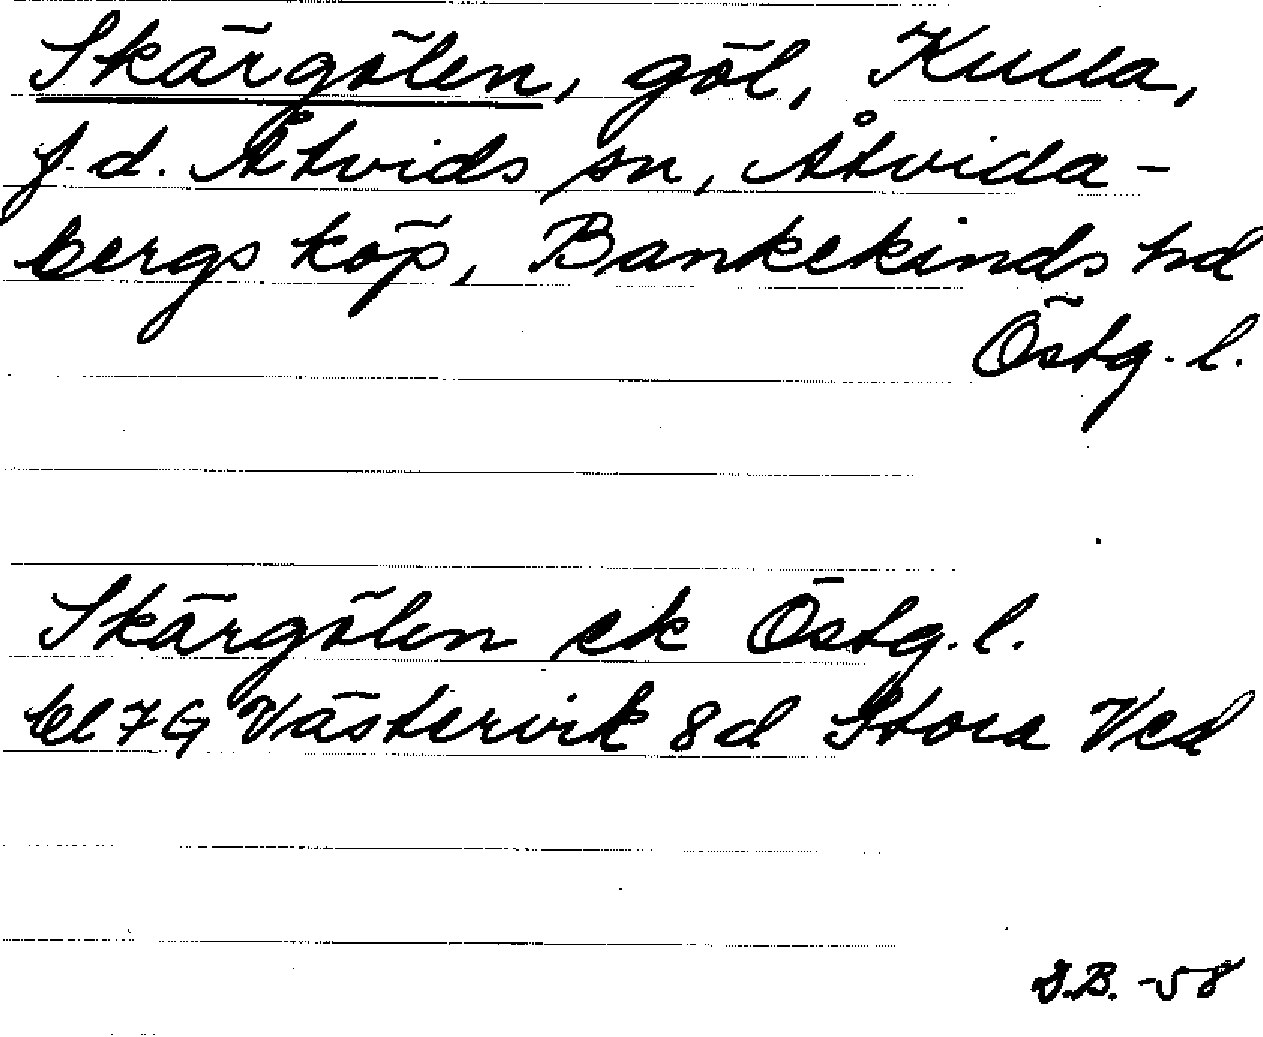 Skärgölen, göl, Kulla,
f.d. Åtvids sn, Åtvida-
bergs köp, Bankekinds hd
Östg. l.
Skärgölen ek Östg. l.
bl 7G Västervik 8d Stora Ved
S.B. -58